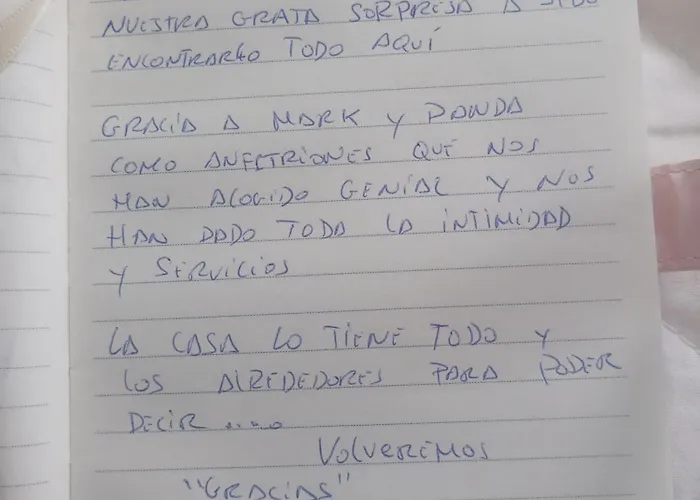 NUESTRA GRATA SORPRESA A SIDO
ENCONTRARLO TODO AQUÍ
GRACIA A MARK Y PANDA
COMO ANFITRIONES QUE NOS
HAN ACOGIDO GENIAL Y NOS
HAN DADO TODA LA INTIMIDAD
Y SERVICIOS
LA CASA LO TIENE TODO Y
LOS ALREDEDORES PARA PODER
DECIR ....
VOLVEREMOS
"GRACIAS"